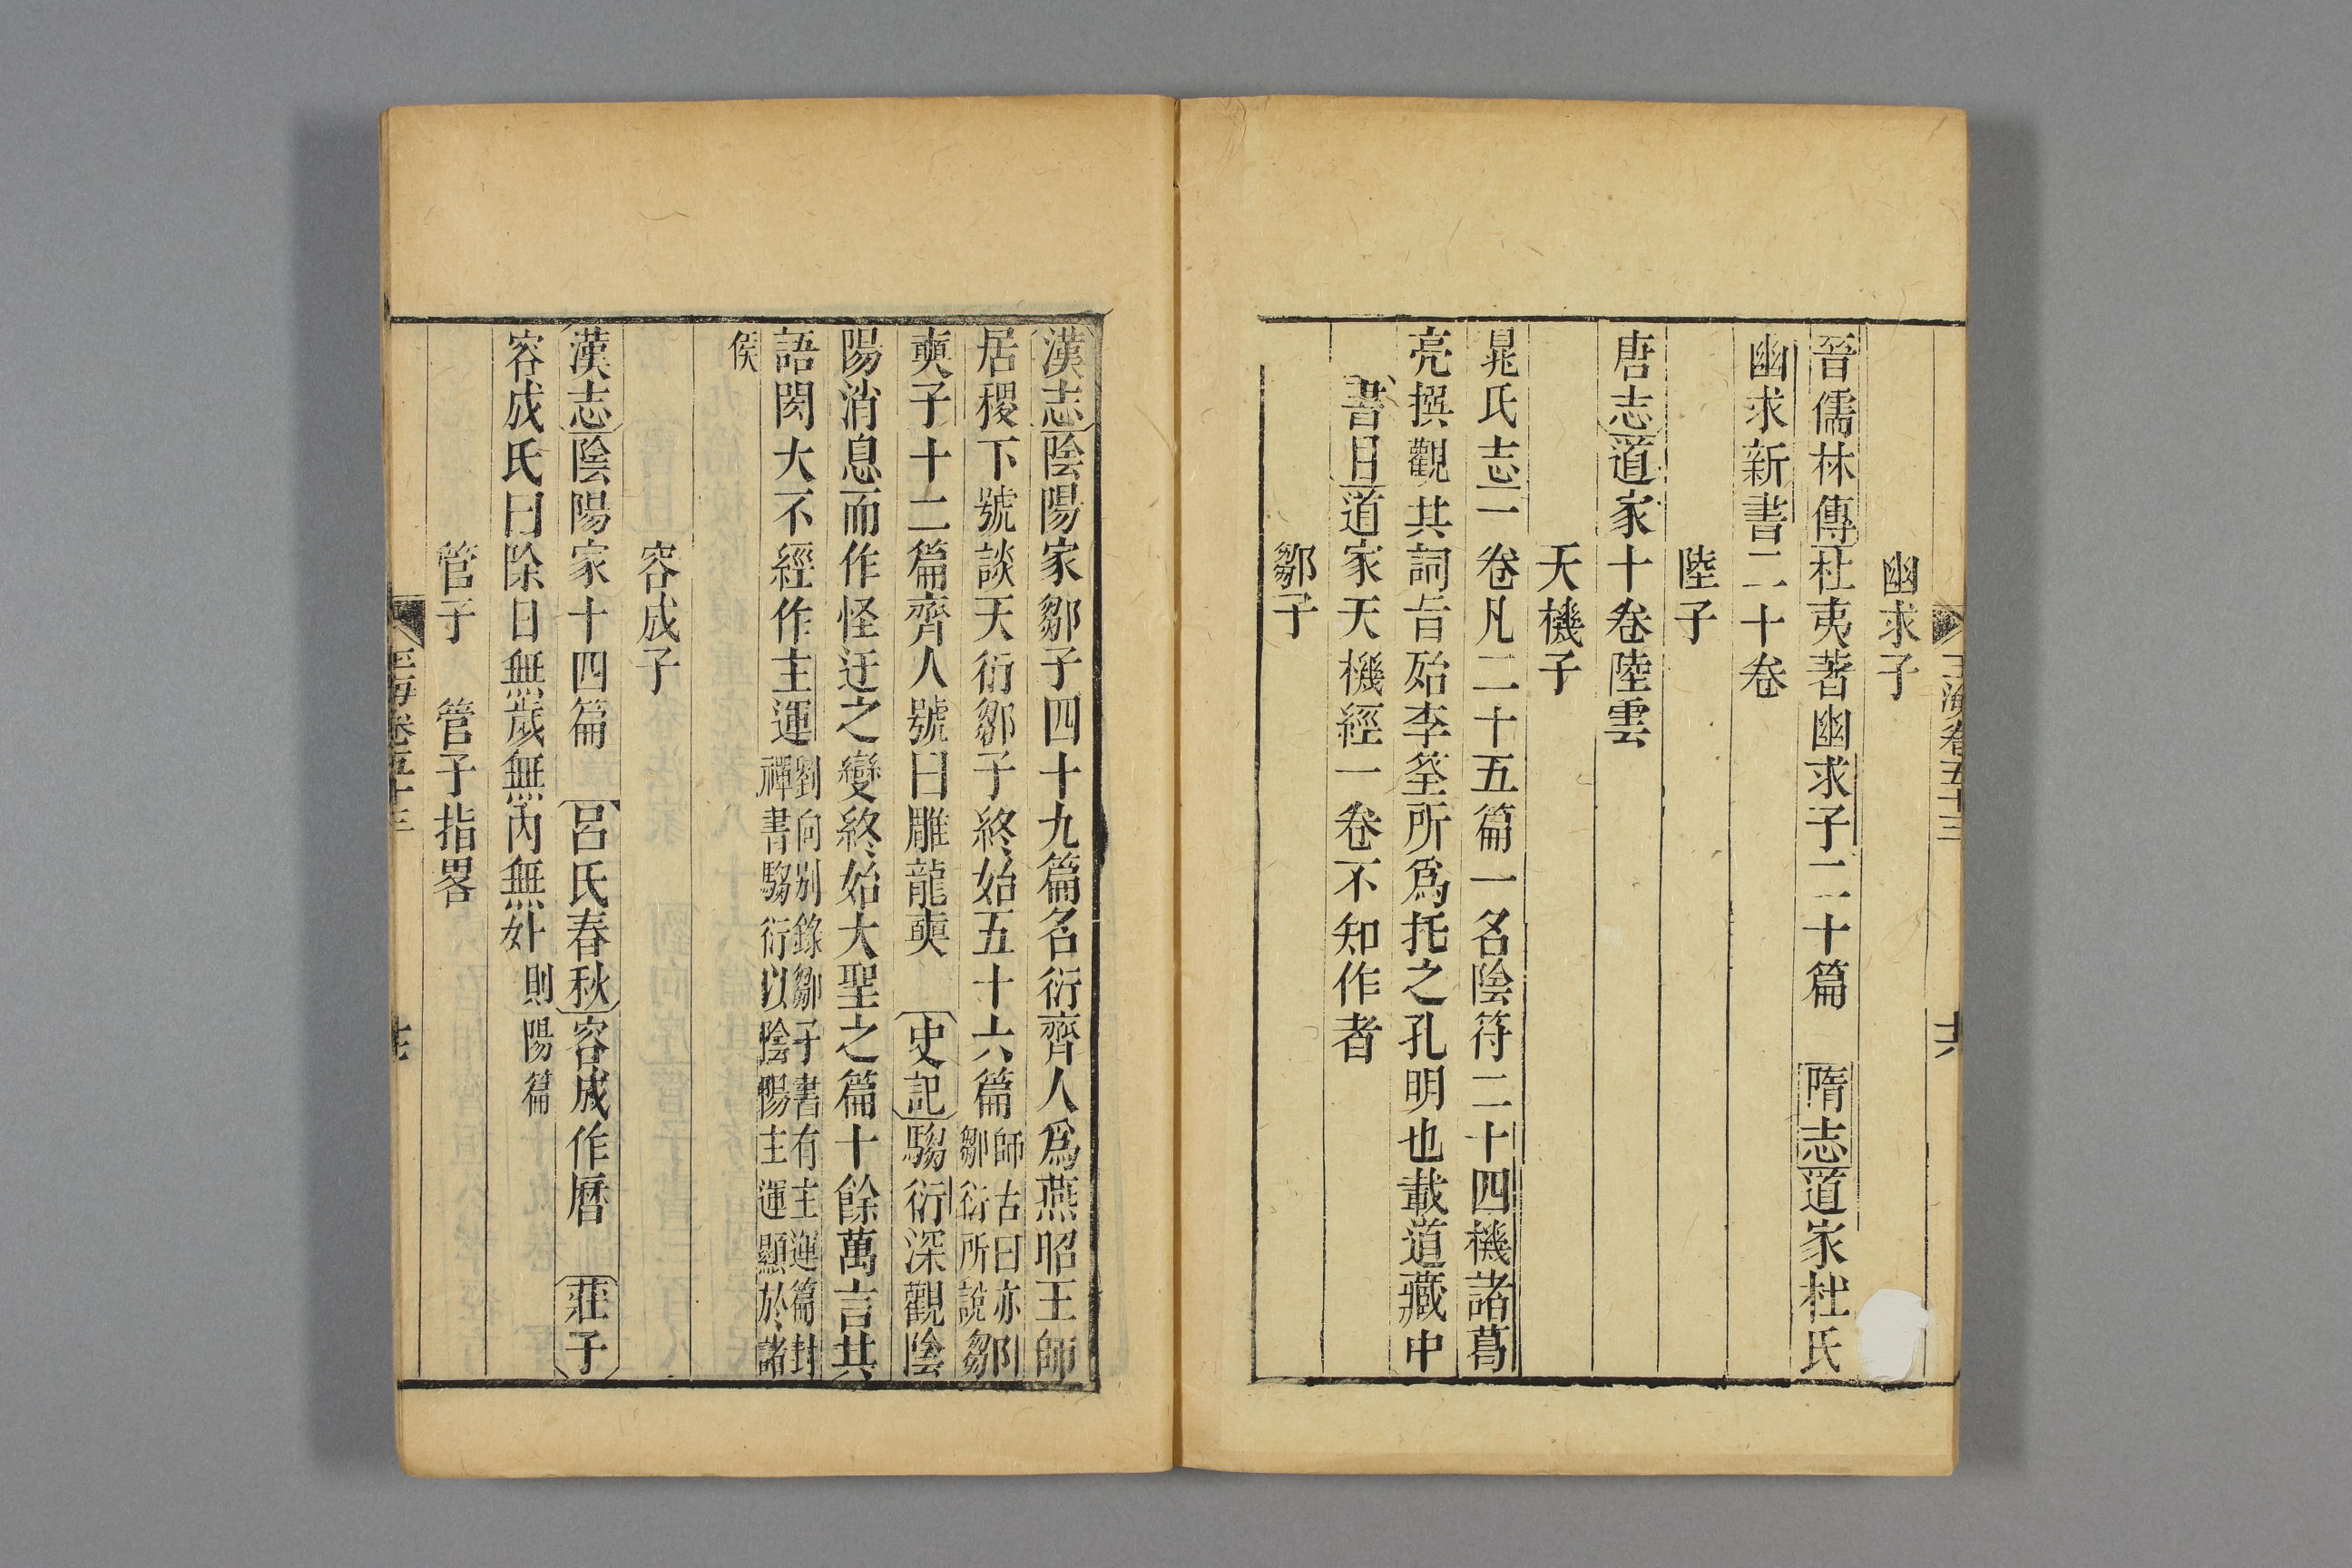 玉海卷五十三
幽求子
晉儒林傳杜夷著幽求子二十篇　隋志道家杜氏
幽求新書二十卷
陸子
唐志道家十卷陸雲
天機子
晁氏志一卷凡二十五篇一名陰符二十四機諸葛
亮撰觀其詞旨殆李筌所爲托之孔明也載道藏中
書目道家天機經一卷不知作者
鄒子
漢志陰陽家鄒子四十九篇名衍齊人爲燕昭王師
居稷下號談天衍鄒子終始五十六篇師古曰亦鄒
衍所說鄒
奭子十二篇齊人號曰雕龍奭　史記騶衍深觀陰
陽消息而作怪迂之變終始大聖之篇十餘萬言其
語閎大不經作主運劉向別錄鄒子書有主運篇封
禪書騶衍以陰陽主運顯於諸
侯
容成子
漢志陰陽家十四篇　呂氏春秋容成作曆　莊子
容成氏曰除日無歲無內無外則陽篇
管子　管子指畧
玉海卷五十三